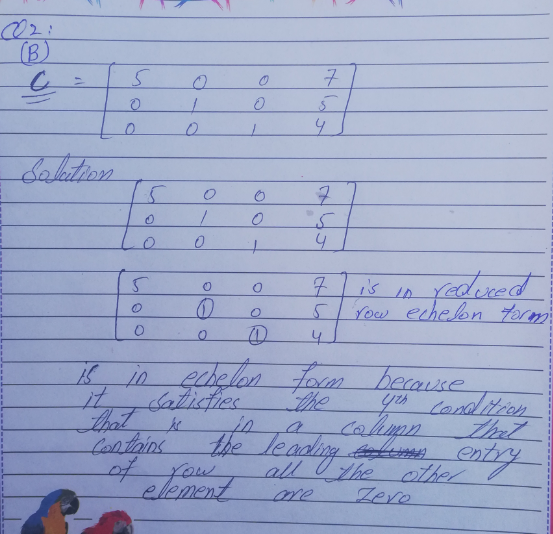 Q2:
(B)
C = [ 5 0 0 7
0 1 0 5
0 0 1 4 ]
Solation
[ 5 0 0 7
0 1 0 5
0 0 1 4 ]
[ 5 0 0 7 ] is in reduced
0 1 0 5 row echelon form
0 0 1 4
is in echelon form because
it satisfies the 4th condition
that is in a column that
contains the leading column entry
of row all the other
element are zero